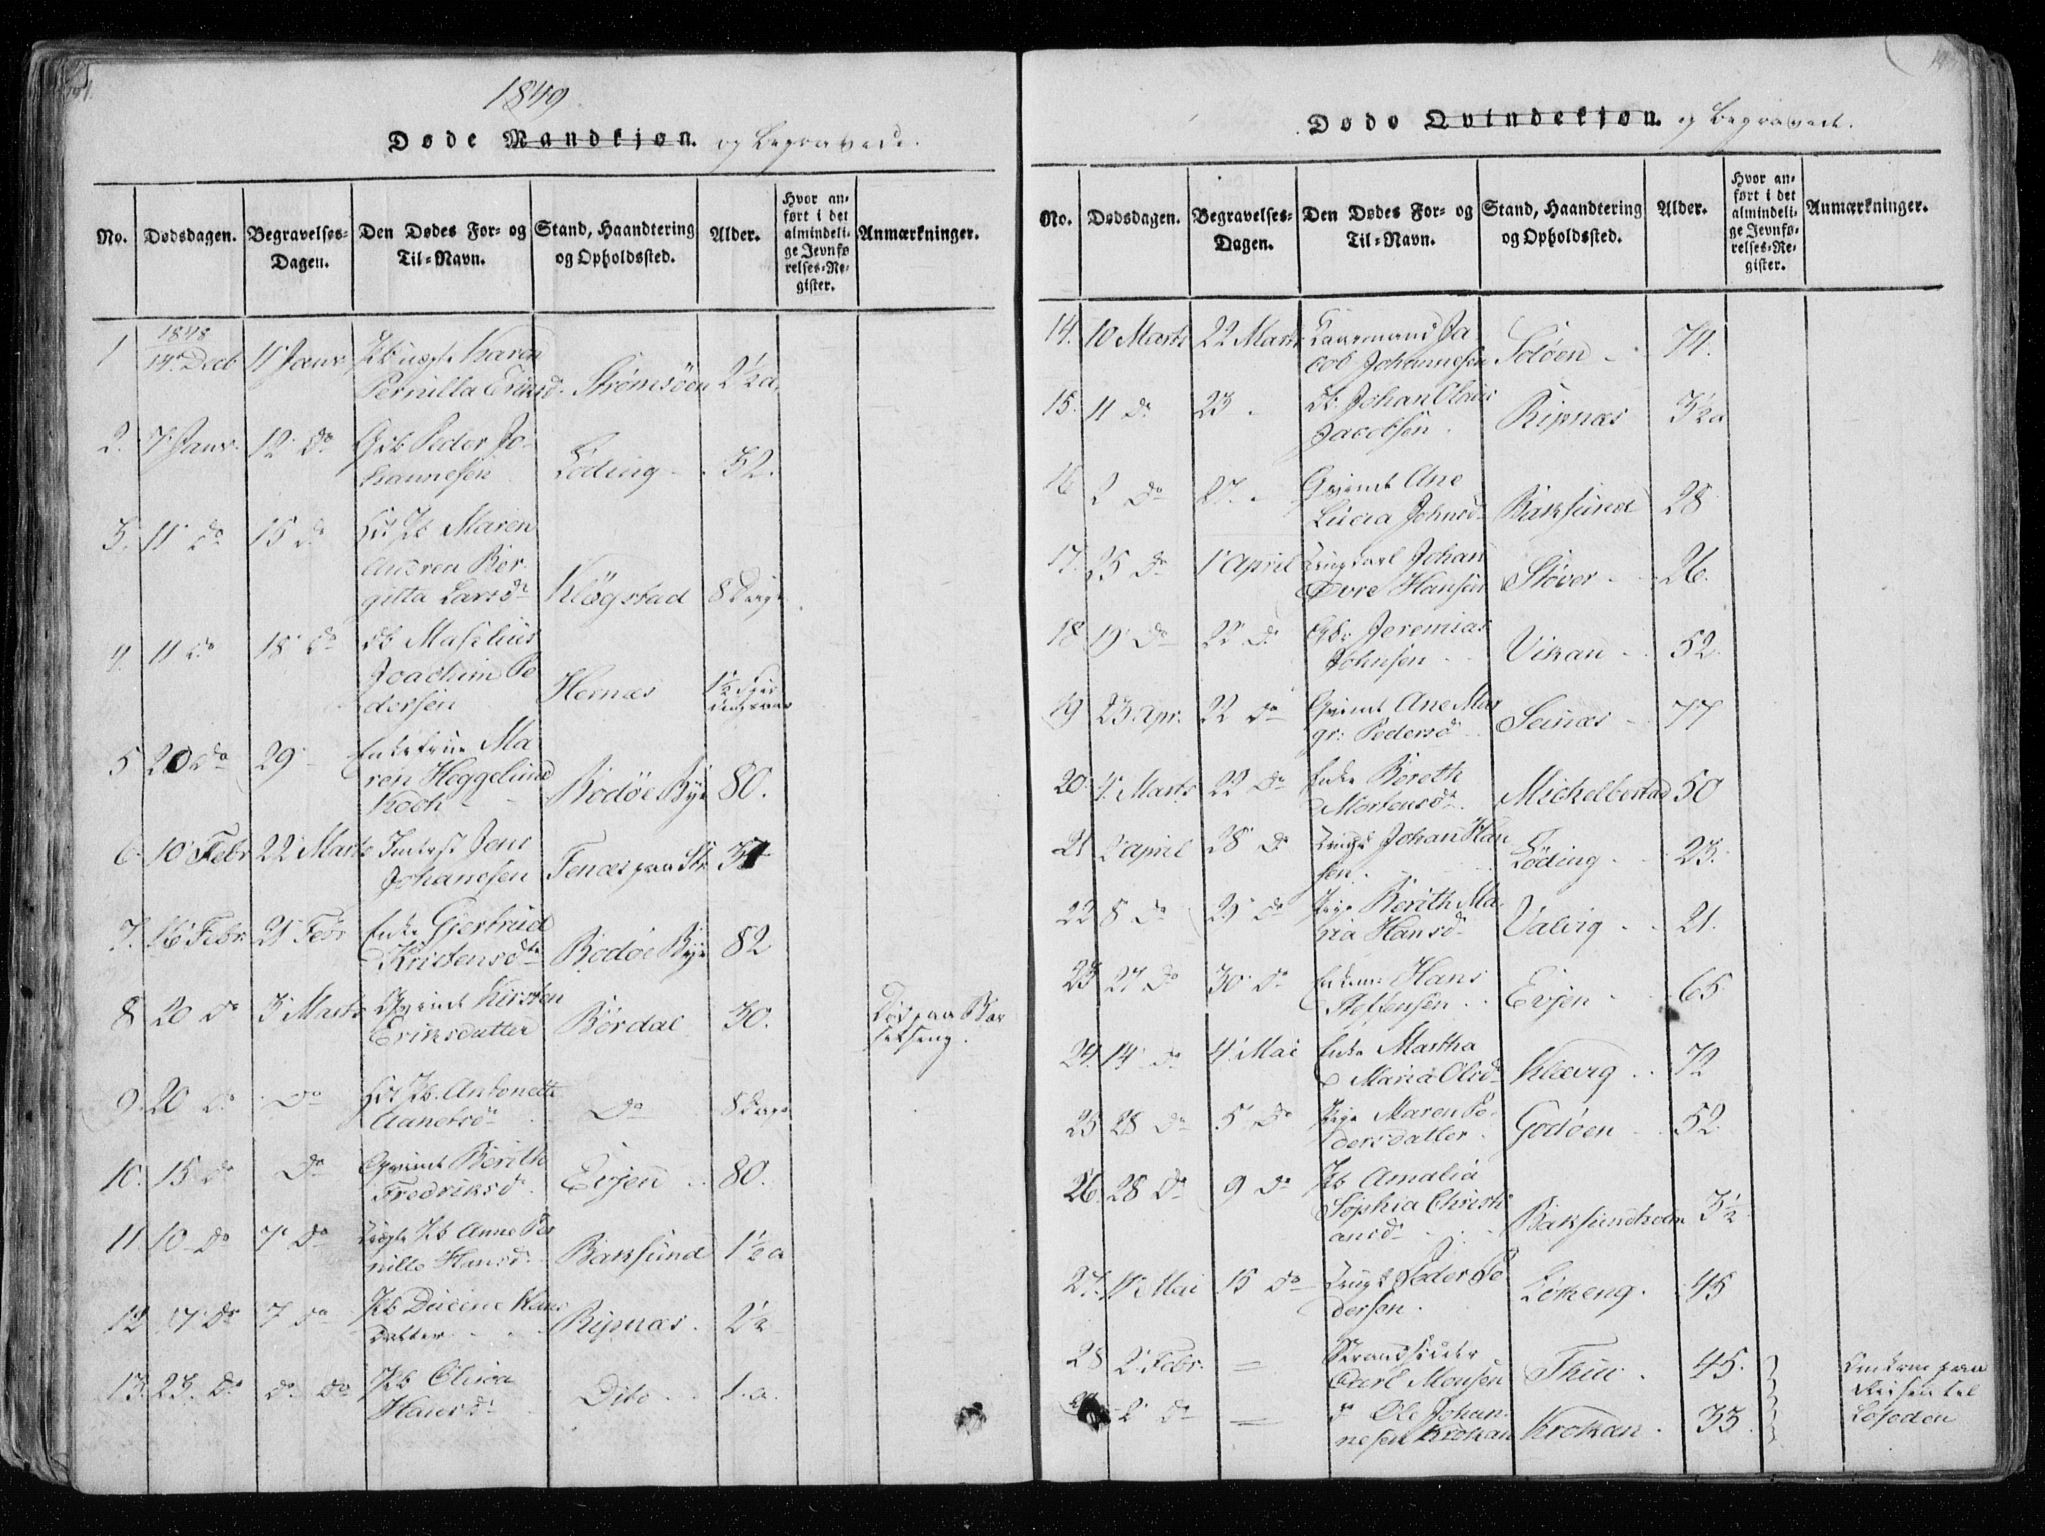 1849
Døde Mandkjøn. og begravede.
No.
Dødsdagen.
Begravelses-
Dagen.
Den Dødes For- og
Til-Navn.
Stand, Haandtering
og Opholdssted.
Alder.
Hvor an-
ført i det
almindeli-
ge Jevnfø
relses-Re-
gister.
Anmærkninger.
1 1848
14 Decb 11 Janv. Karen
Pernilla Strømsöen 2½ a.
2. 7 Janv. 12 do Gb Peder Jo-
hannesen Löding 52.
3. 11 do 15 do Pb Maren
Andrea Ber-
gitta Larsd. Kløgstad 8 Dage
4. 11 do 18 do Db
Joachim Pe
dersen Hernæs 1½
5 20 do 29 Enkefrue Ma
ren Heggelund
Koch Bodöe Bye 80.
6. 10 Febr 22 Marts Inderst Jens
Johansen Fenæs paa Str.
7. 16 Febr. 21 Febr Enke Gjertrud
Kristensdtr Bodöe Bye 82
8 20 do 3 Marts Gvinde Kirsten
Eriksdatter Bördal 30. Död paa Bar
selseng.
9. 20 do do Pb. Antonette
do 8 Dage
10. 15 do do Gvinde Berith
Fredriksd. Evjen 80.
11. 10 do 7 do Pb Anne Per
nille Hansd. Baksund 1½ a
12 17 do 7 do Pb Hans
Datter Ripnæs 2½
13. 23. do do do Pb Olina
Hansd. Dito 1. a.
Døde Qvindekjøn. og begravede.
No.
Dødsdagen.
Begravelses-
Dagen.
Den Dødes For- og
Til-Navn.
Stand, Haandtering
og Opholdssted.
Alder.
Hvor an-
ført i det
almindeli-
ge Jevnfø-
relses-Re-
gister.
Anmærkninger.
14. 10 Marts 22 Marts Ja
cob Johannesen Solöen 74.
15. 11 do 23 Db. Johan Olaus
Jacobsen Ripnæs 3½ a
16 2 do 27. Gvinde Ane
Lucia Johnsd. Baksund 28
17. 25 do 1 April Ungkarl Johan
Hansen Stöver 26.
18 19 do 22 do Gb. Jeremias
Johnsen Vikan 52.
19 23 Apr. 22 do Gvinde Ane Mar
gr: Pedersd. Seinæs 77
20. 4 Marts 22 do Enke Bereth
Mortensd. Michelbostad 50
21 2 April 28 do Ungk Johan Han
sen. Löding 23.
22 8 do 25 do Pige Berith Ma-
ria Hansd. Valvig 21.
23 27 do 30 do Enkem: Hans
Steffensen Evjen 65.
24. 14 do 4 Mai Enke Martha
Maria Olsd. Klævig 72
25 28 do 5 do Pige Maren Pe-
dersdatter. Godöen 52.
26. 28 do 9 do Pb Amalia
Sophia Christi
ansd. Baksundholm 3½
27. 11 Mai 15 do Ungk Peder Pe
dersen. Lökeng. 45
28 2 Febr. = Strandsidder
Carl Monsen Thuv 45. Omkom paa
Reisen til
Lofoden
2 do = do Ole Johan-
nesen Krokan Krokan. 33.